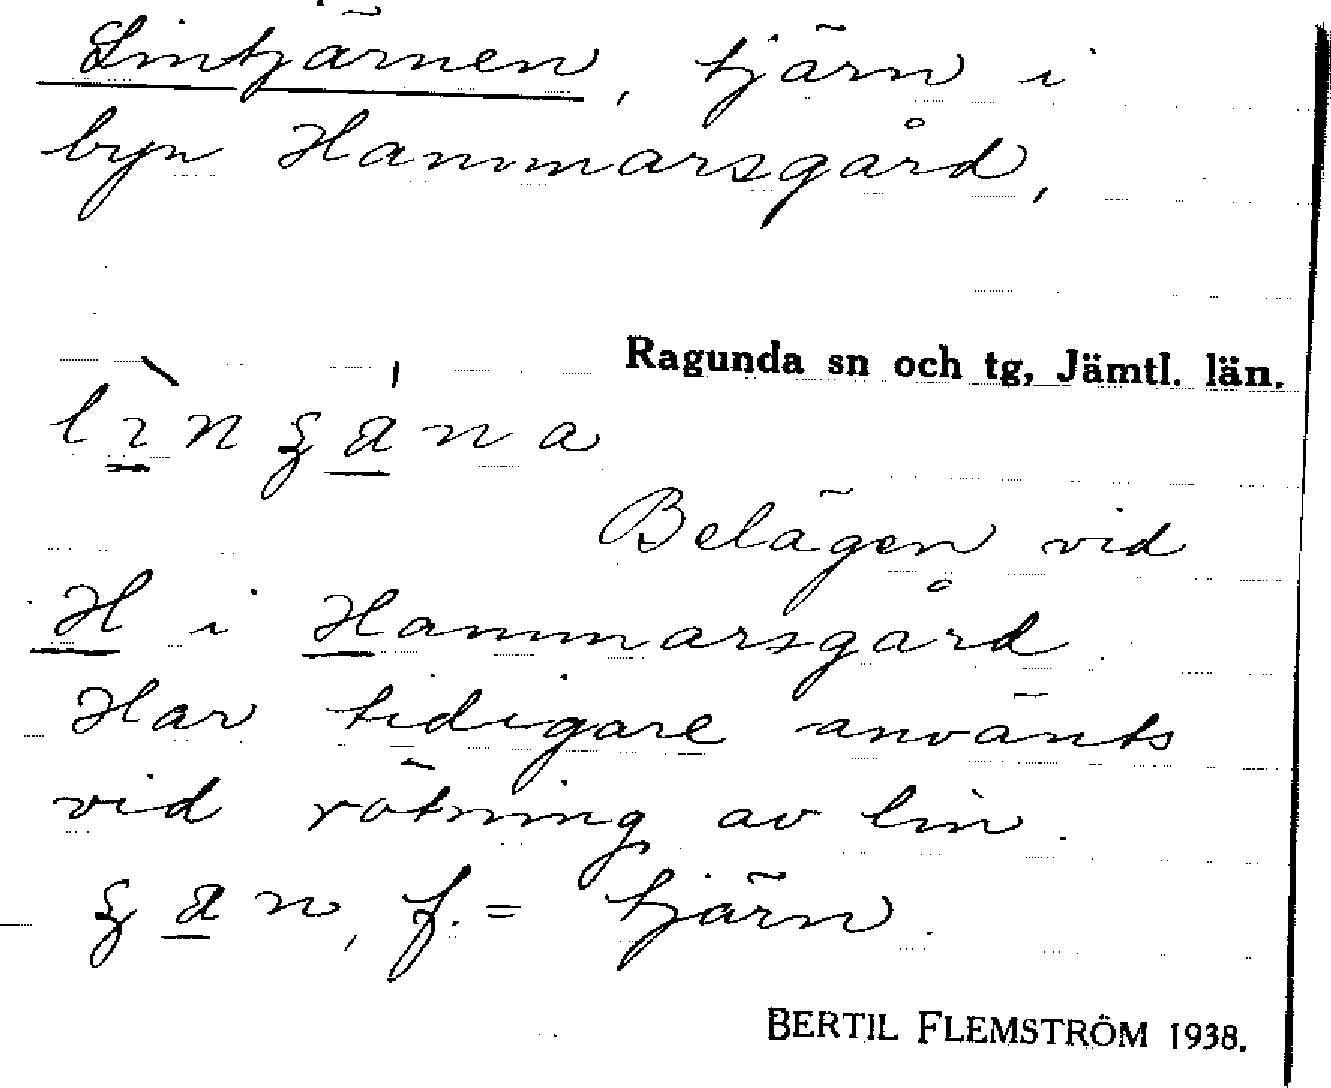 Lintjärnen, tjärn i
byn Hammarsgård,
Ragunda sn och tg, Jämtl. län.
Belägen vid
H i Hammarsgård
Har tidigare använts
vid rötning av lin.
f. = tjärn.
BERTIL FLEMSTRÖM 1938.